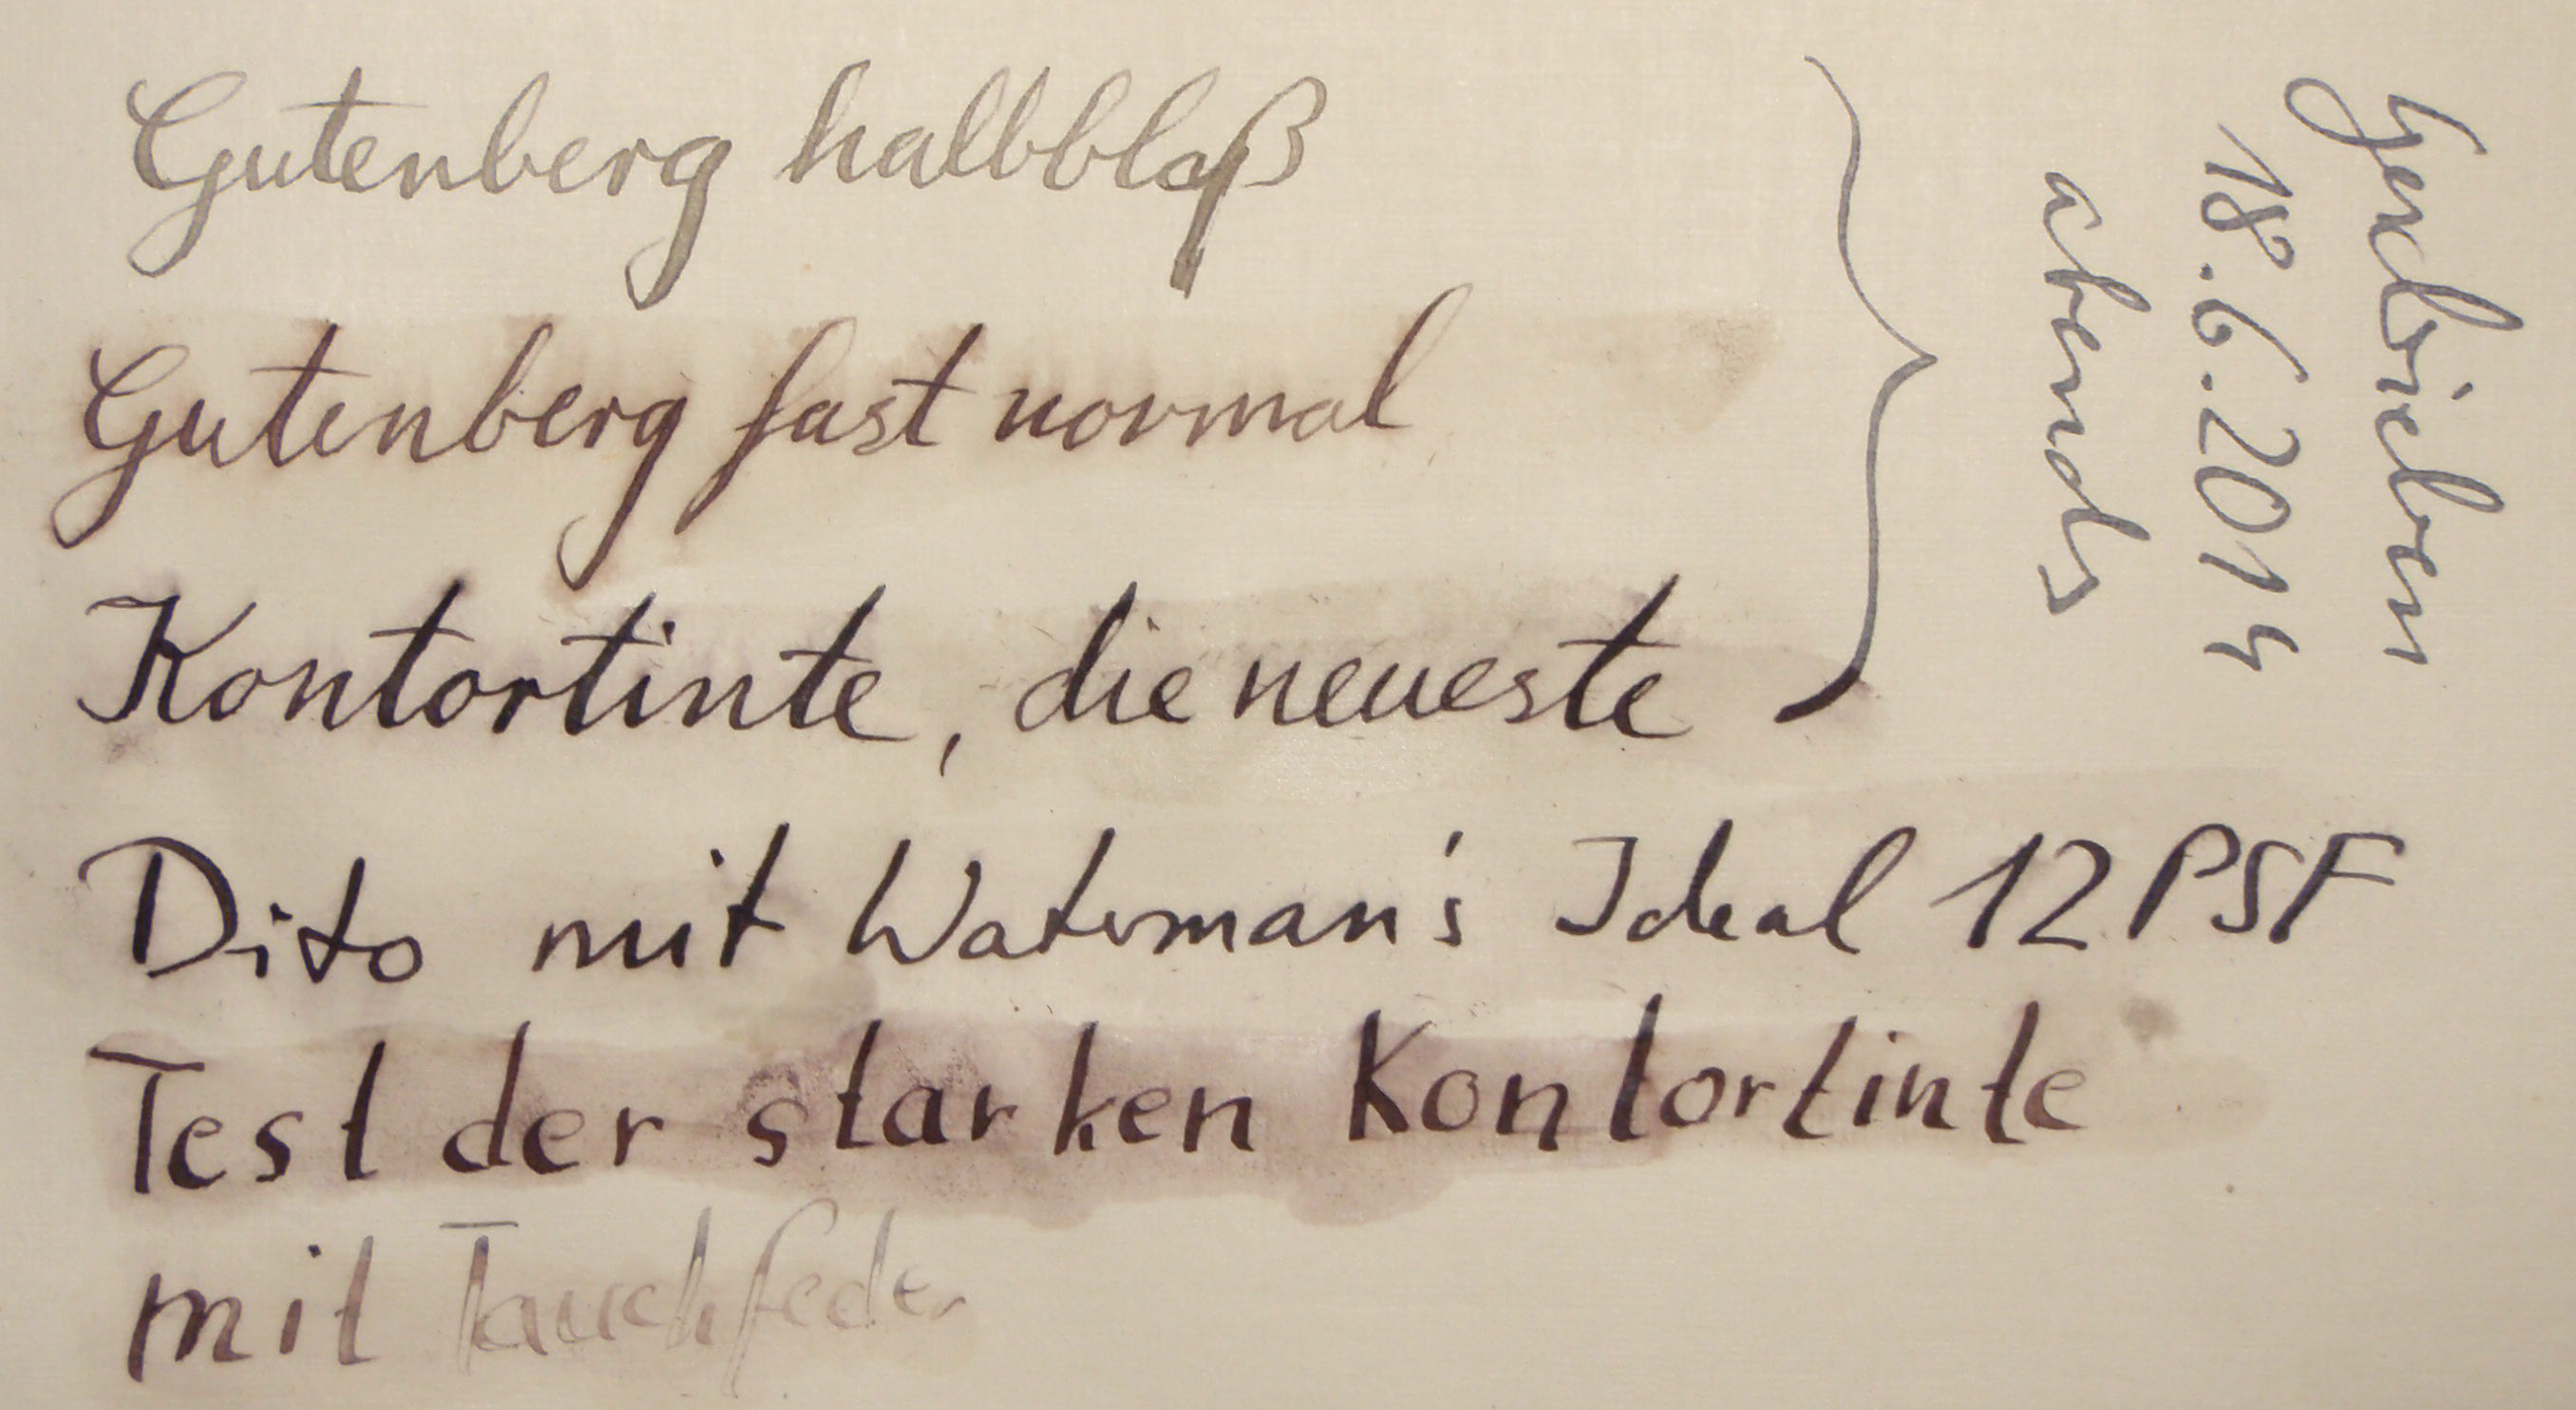 Gutenberg halbblaß
Gutenberg fast normal
Kontortinte, die neueste
Dito mit Waterman's Ideal 12 PSF
Test der starken Kontortinte
mit Tauchfeder
Geschrieben
18.6.2014
abends